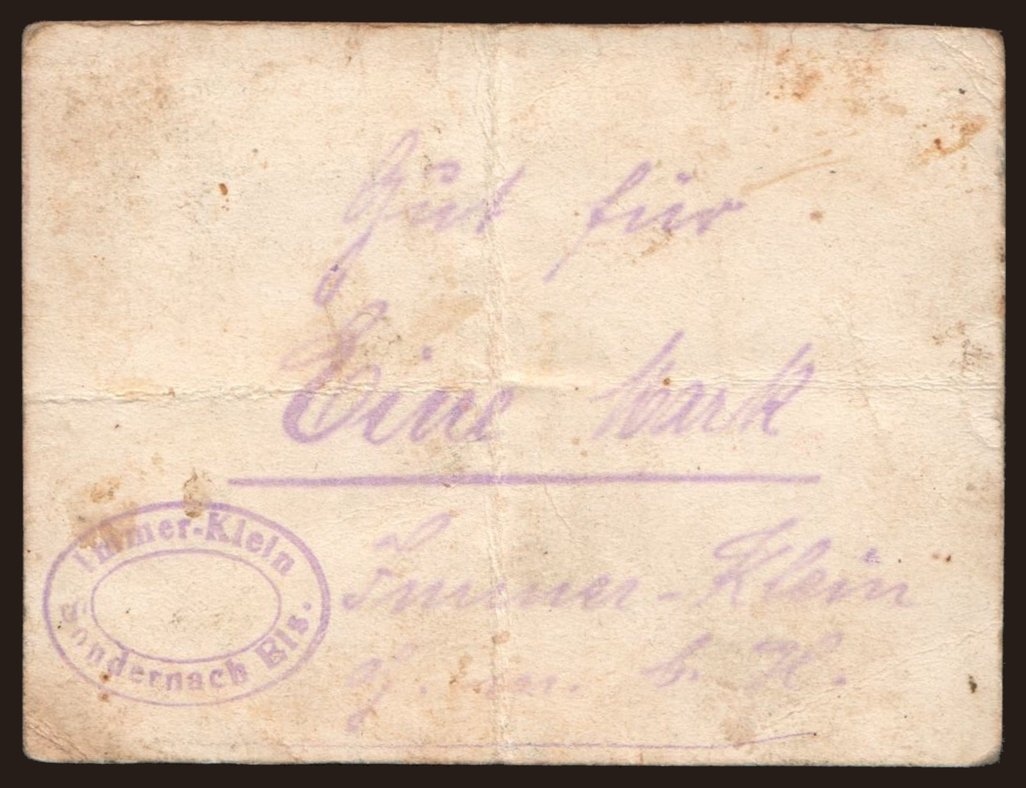 Gut für
Eine Mark
Immer-Klein
G. m. b. H.
Immer-Klein
Sondernach Els.